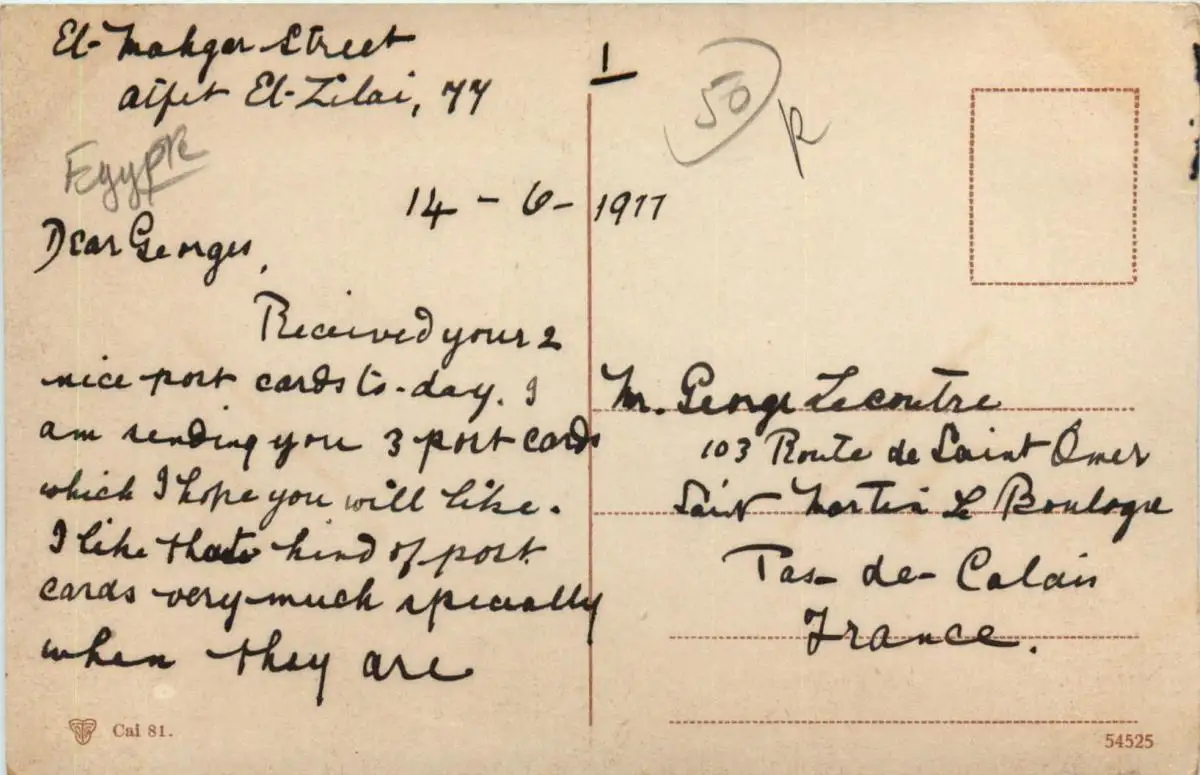 El-Mahgar Street
El-Zilai, 77
Egypte
14 - 6 - 1911
Dear Georges,
Received your 2
nice post cards to-day. I
am sending you 3 post cards
which I hope you will like.
I like that kind of post
cards very much specially
when they are
Cai 81.
1
50
R
Mr. George Lecoutre
103 Route de Saint Omer
Saint Martin Le Boulogne
Pas-de-Calais
France.
54525